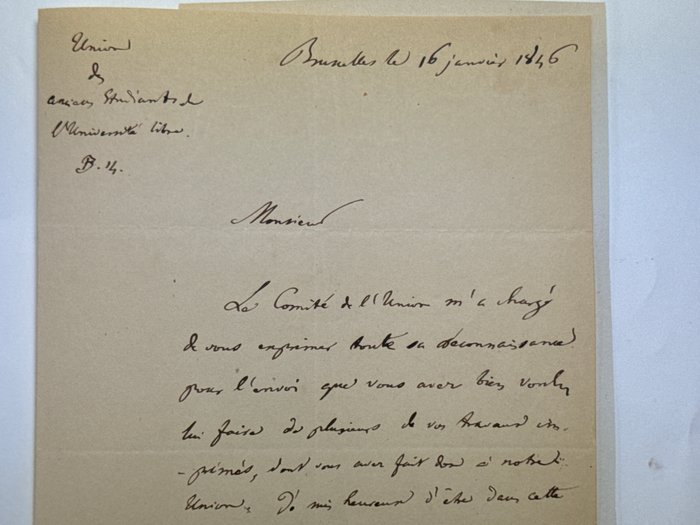 Union
des
anciens Etudiants de
l'Université libre.
B. 14.
Bruxelles le 16 janvier 1846
Monsieur
Le Comité de l'Union m'a chargé
de vous exprimer toute sa reconnaissance
pour l'envoi que vous avez bien voulu
lui faire de plusieurs de vos travaux im-
-primés, dont vous avez fait don à notre
Union. Je suis heureux d'être dans cette